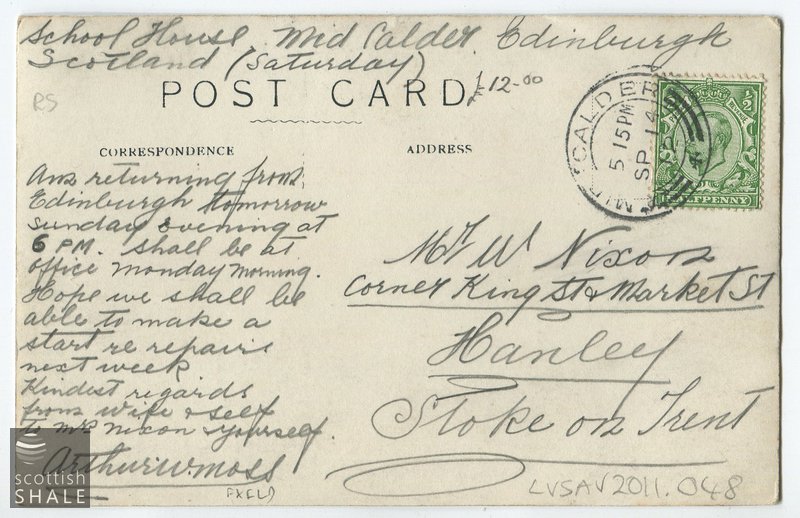 School House, Mid Calder. Edinburgh
Scotland (Saturday)
POST CARD
£12-00
RS
CORRESPONDENCE
ADDRESS
MID CALDER
5 15 PM
SP 14
HALFPENNY
1/2
Am returning from
Edinburgh tomorrow
Sunday evening at
6 PM. Shall be at
office Monday Morning.
Hope we shall be
able to make a
start re repairs
next week
Kindest regards
from wife & self
to Mrs Nixon & Yourself.
Arthur W. Moss
Mr W Nixon
Corner King St & Market St
Hanley
Stoke on Trent
LVSAV2011.048
scottish
SHALE